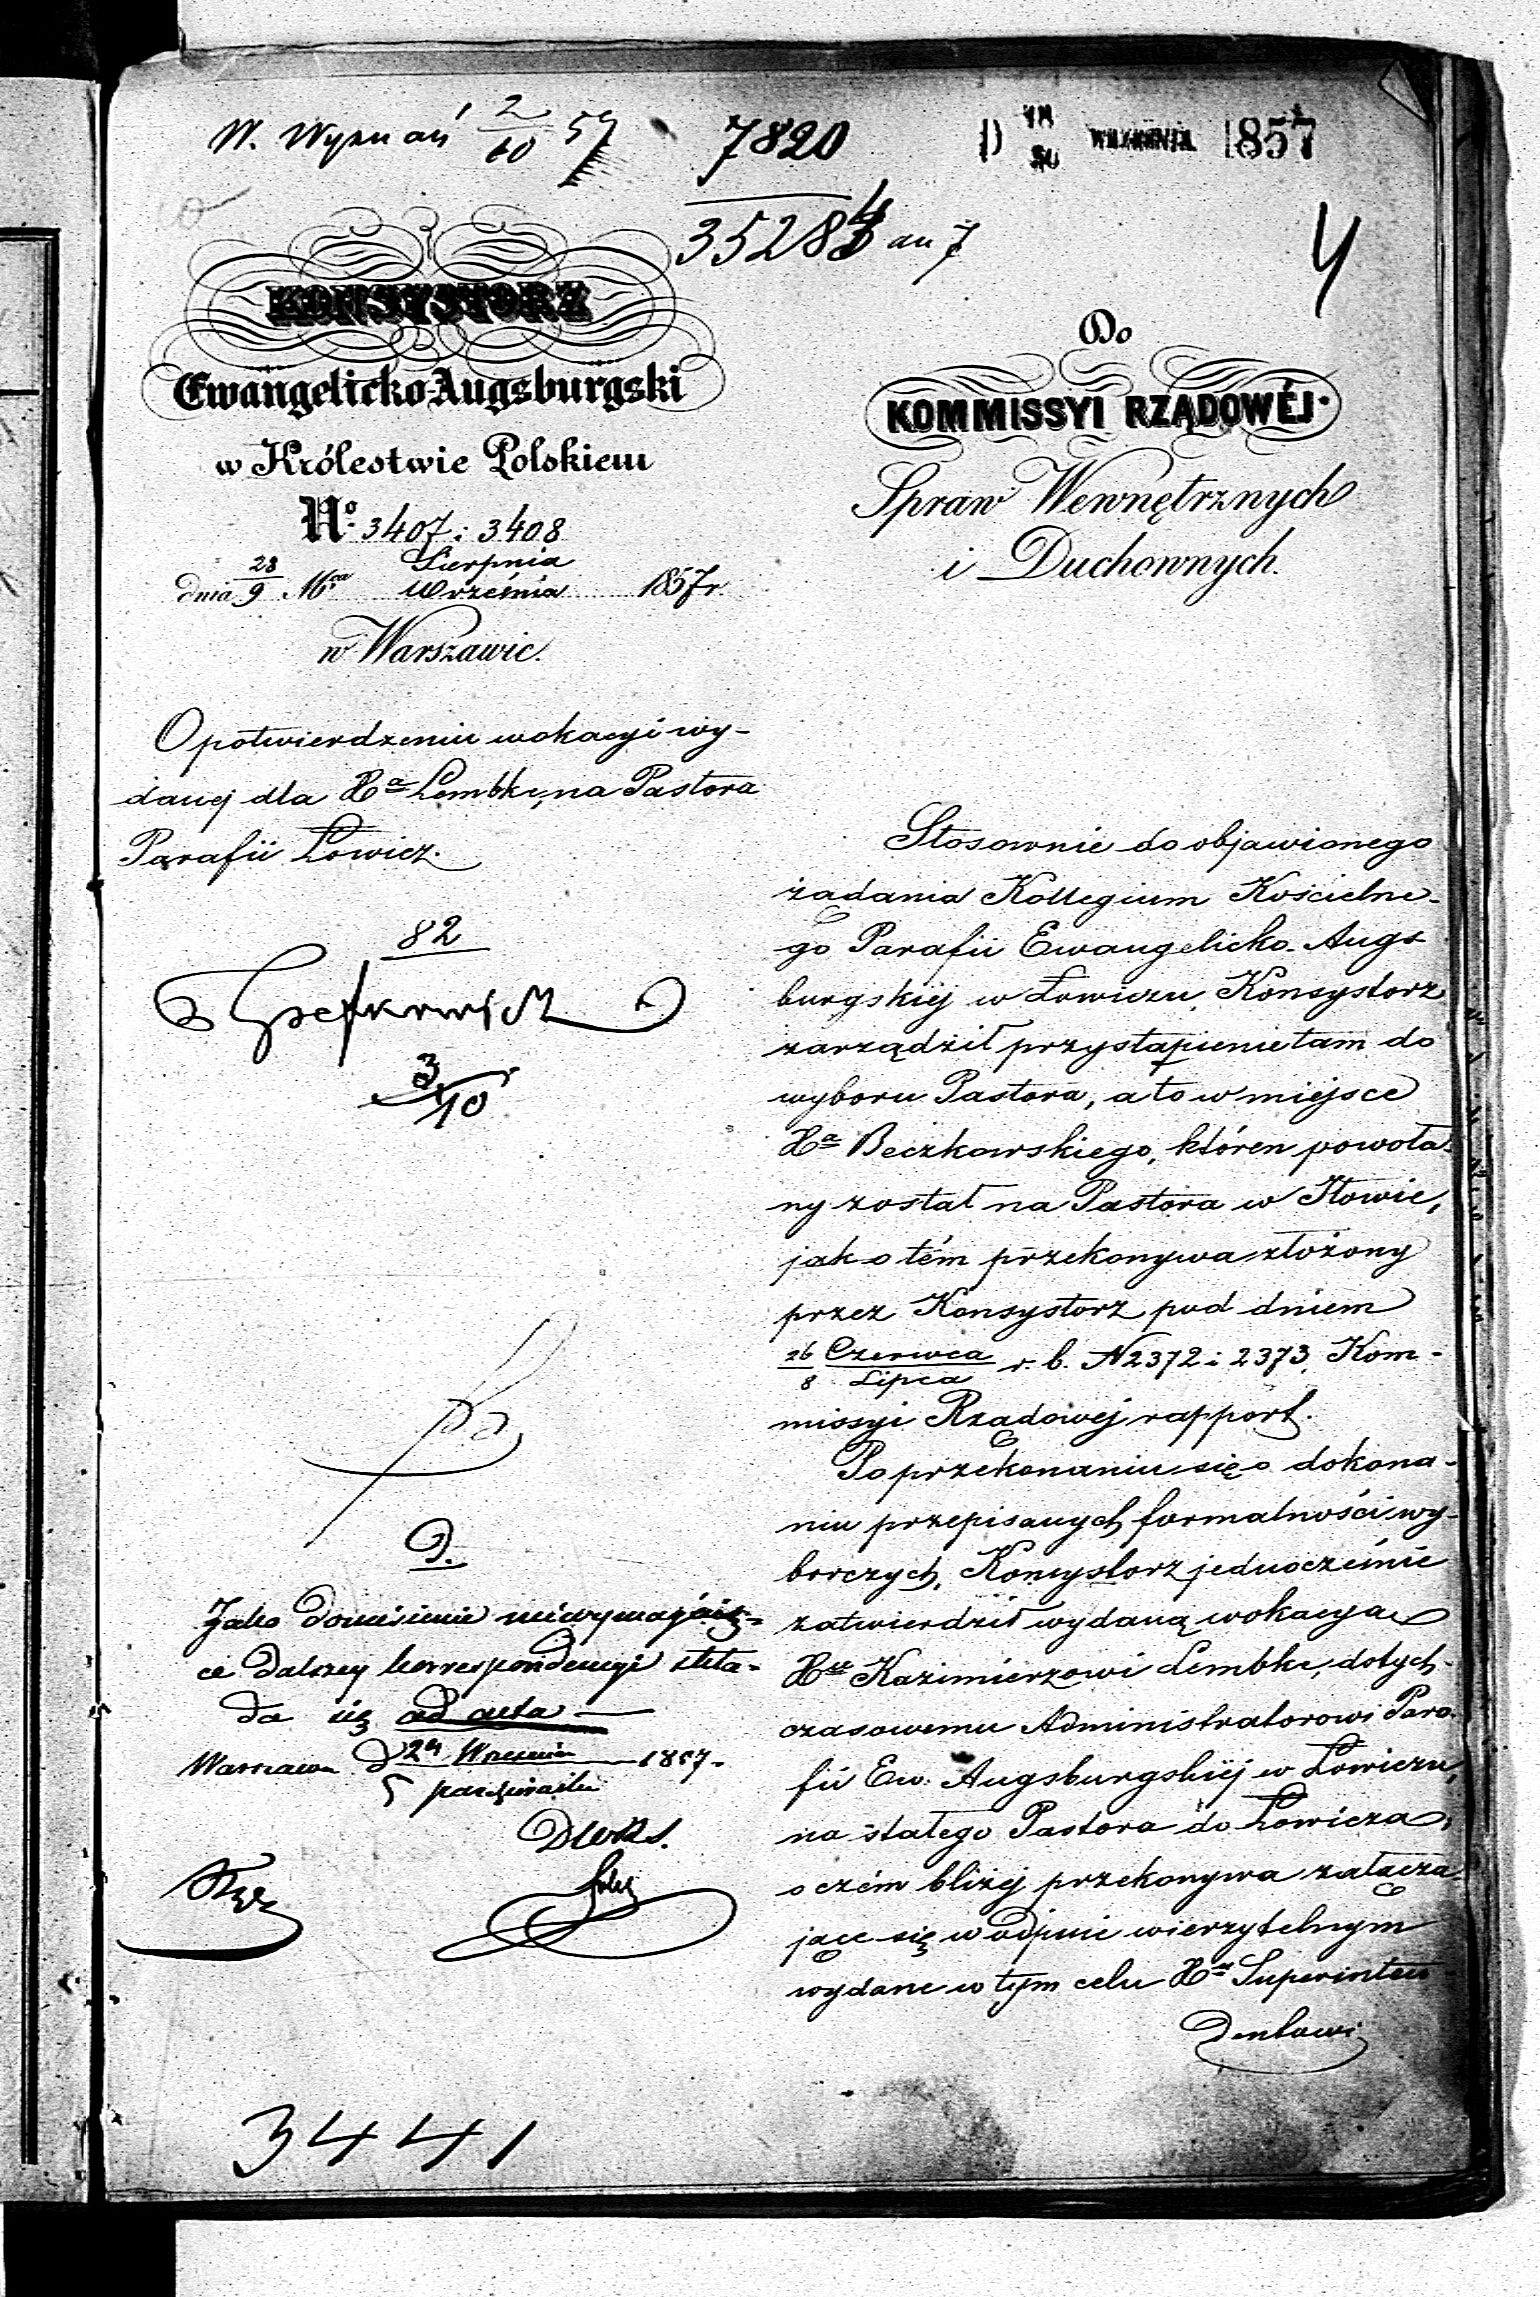 W. Wyznań 2/10 57
7820
35284 au 7
D WRZEŚNIA 1857
4
KONSYSTORZ
Ewangelicko-Augsburgski
w Królestwie Polskiem
No. 3407 i 3408
dnia 28/9 Mca Sierpnia/Września 1857 r.
w Warszawie.
O potwierdzeniu wokacyi wy-
danej dla Xa Lembke, na Pastora
Parafii Łowicz.
82
3/10
D.
Jako doniesienie niewymagają-
ce dalszey korrespondencyi skła-
da się ad acta
Warszawa d 24 Września 1857.
5 października
3441
Do
KOMMISSYI RZĄDOWÉJ
Spraw Wewnętrznych
i Duchownych.
Stosownie do objawionego
żądania Kollegium Kościelne-
go Parafii Ewangelicko-Augs-
burgskiéj w Łowiczu, Konsystorz
zarządził przystąpienie tam do
wyboru Pastora, a to w miejsce
Xa Beczkowskiego, któren powoła-
ny został na Pastora w Iłowie,
jak o tém przekonywa złożony
przez Konsystorz pod dniem
26/8 Czerwca/Lipca r. b. N 2372 i 2373, Kom-
missyi Rządowej rapport.
Po przekonaniu się o dokona-
niu przepisanych formalności wy-
borczych, Konsystorz jednocześnie
zatwierdził wydaną wokacyą
Xu Kazimierzowi Lembke, dotych-
czasowemu Administratorowi Para-
fii Ew. Augsburgskiéj w Łowiczu,
na stałego Pastora do Łowicza,
o czém bliżej przekonywa załącza-
jące się w odpisie wierzytelnym
wydane w tym celu Xu Superinten-
dentowi